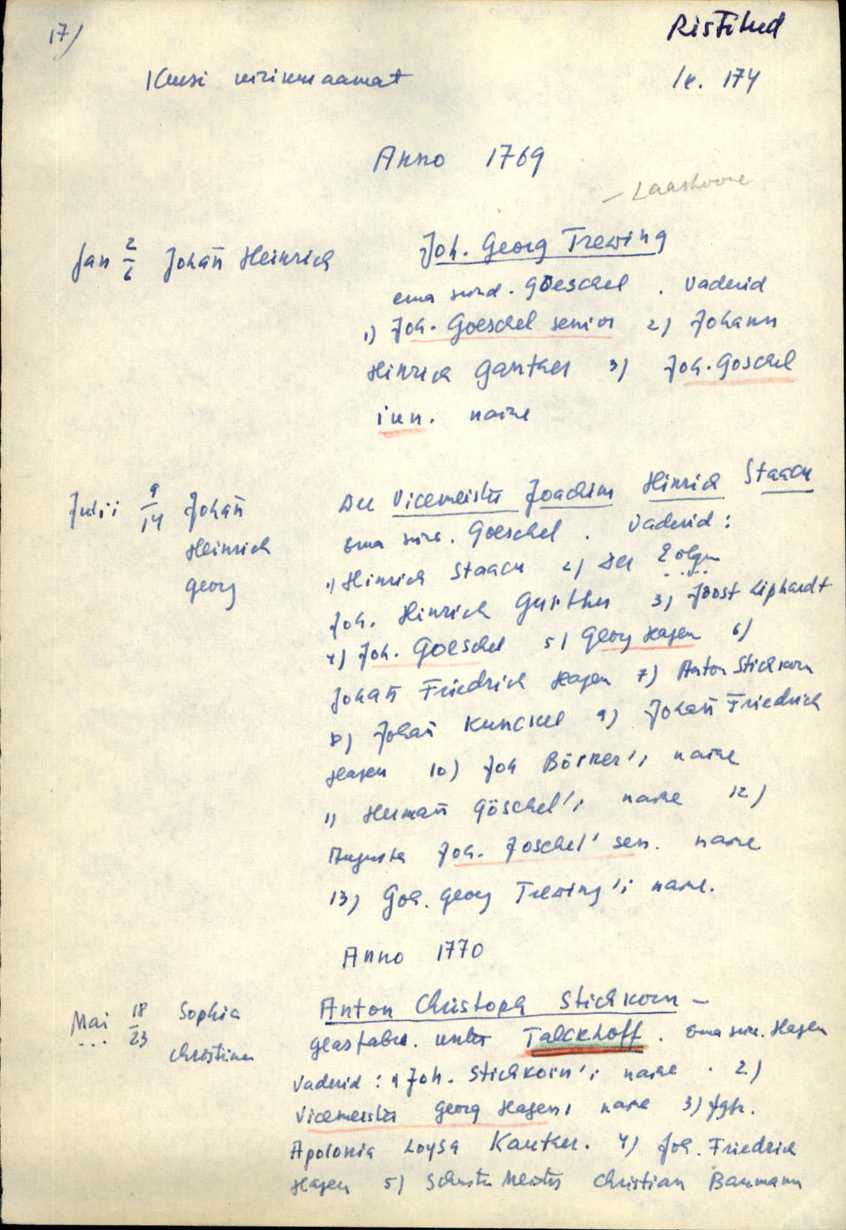 17)
Ristitud
Kursi kirikuraamat lk. 174
Anno 1769
— Laashoone
Jan 2/6 Johañ Heinrich Joh. Georg Trewing
ema sünd. Goeschel. Vaderid
1) Joh. Goeschel senior 2) Johann
Hinrich Ganther 3) Joh. Goschel
iun. naine
Julii 9/14 Johañ Der Vicemeister Joachim Hinrich Staack
Heinrich ema sünd. Goeschel. Vaderid:
Georg 1) Hinrich Staack 2) Der
Joh. Hinrich Gunther 3) Joost Liphardt
4) Joh. Goeschel 5) Georg Hagen 6)
Johañ Friedrich Hagen 7) Anton Stickorn
8) Johañ Kunckel 9) Johañ Friedrich
Hagen 10) Joh Börner's naine
11) Hermañ Göschel's naine 12)
Augusta Joh. Joschel' sen. naine
13) Joh. Georg Trewing's naine.
Anno 1770
Mai 18/23 Sophia Anton Christoph Stickkorn —
Christina Glasfabr. unter Talckhoff. ema sün. Hagen
Vaderid: 1) Joh. Stickkorn's naine. 2)
Vicemeister Georg Hagens naine 3) Jgfr.
Apolonia Loysa Kanther. 4) Joh. Friedrich
Hagen 5) Schuster Meister Christian Baumann